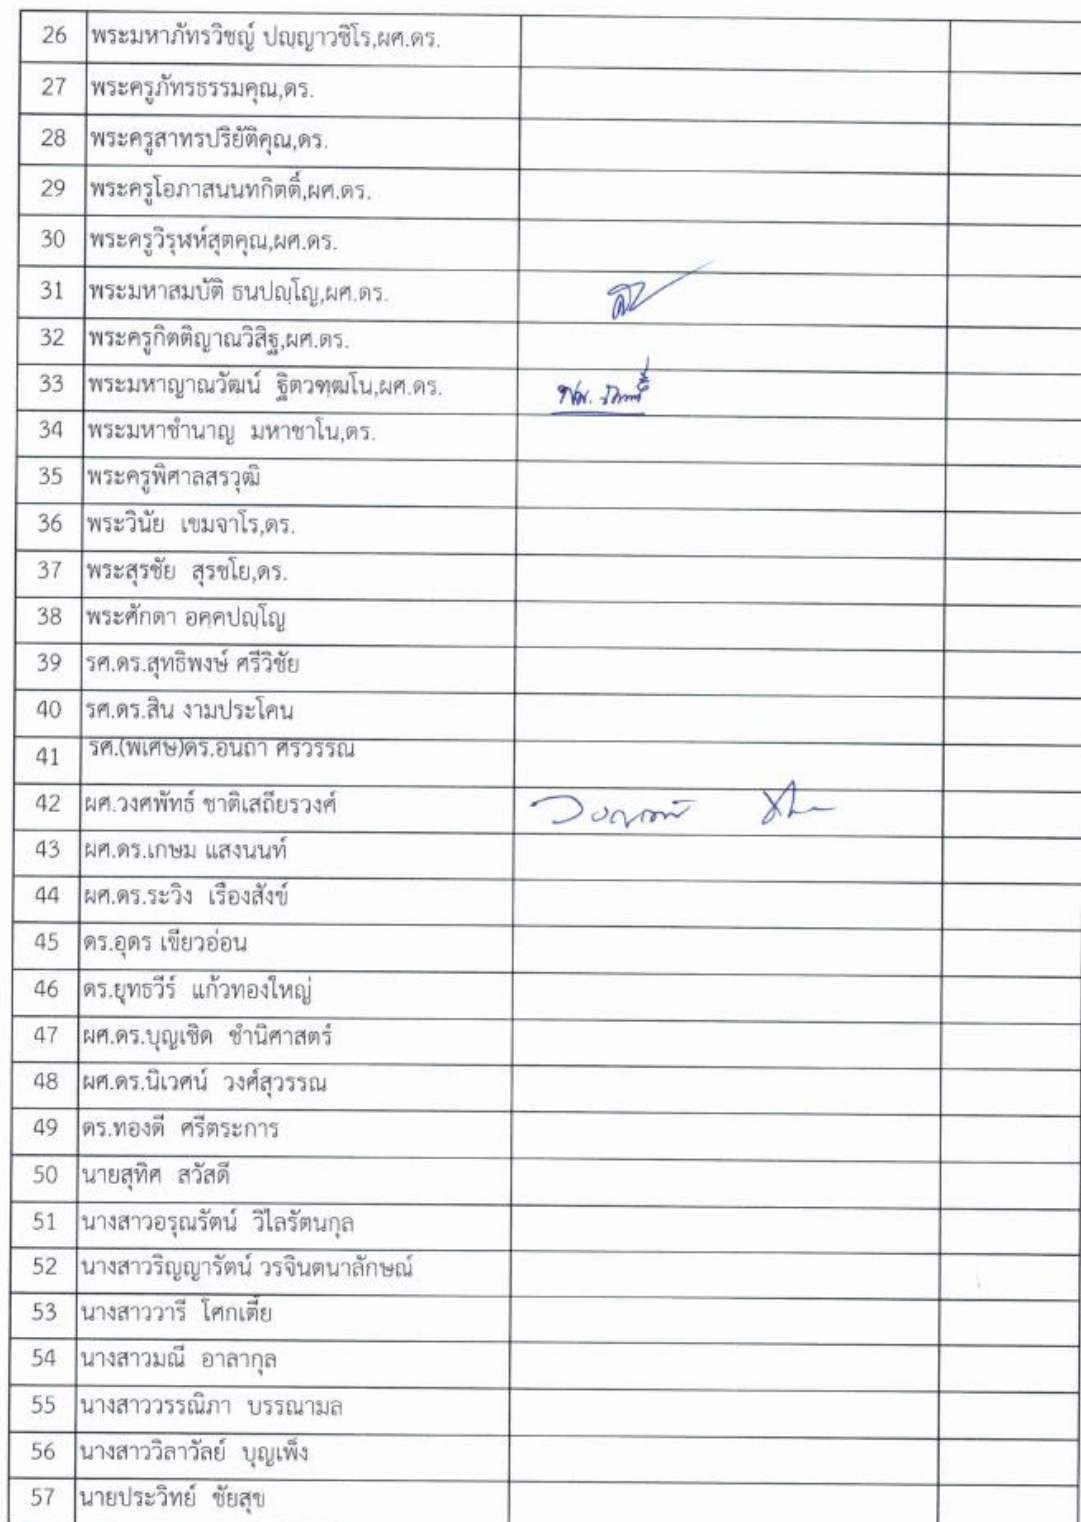 26 พระมหาภัทรวิชญ์ ปญฺญาวชิโร,ผศ.ดร.
27 พระครูภัทรธรรมคุณ,ดร.
28 พระครูสาทรปริยัติคุณ,ดร.
29 พระครูโอภาสนนทกิตติ์,ผศ.ดร.
30 พระครูวิรุฬห์สุตคุณ,ผศ.ดร.
31 พระมหาสมบัติ ธนปญฺโญ,ผศ.ดร.
32 พระครูกิตติญาณวิสิฐ,ผศ.ดร.
33 พระมหาญาณวัฒน์ ฐิตวฑฺฒโน,ผศ.ดร.
34 พระมหาชำนาญ มหาชาโน,ดร.
35 พระครูพิศาลสรวุฒิ
36 พระวินัย เขมจาโร,ดร.
37 พระสุรชัย สุรชโย,ดร.
38 พระศักดา อคฺคปญฺโญ
39 รศ.ดร.สุทธิพงษ์ ศรีวิชัย
40 รศ.ดร.สิน งามประโคน
41 รศ.(พิเศษ)ดร.อินถา ศิริวรรณ
42 ผศ.วงศพัทธ์ ชาติเสถียรวงศ์
43 ผศ.ดร.เกษม แสงนนท์
44 ผศ.ดร.ระวิง เรืองสังข์
45 ดร.อุดร เขียวอ่อน
46 ดร.ยุทธวีร์ แก้วทองใหญ่
47 ผศ.ดร.บุญเชิด ชำนิศาสตร์
48 ผศ.ดร.นิเวศน์ วงศ์สุวรรณ
49 ดร.ทองดี ศรีตระการ
50 นายสุทิศ สวัสดี
51 นางสาวอรุณรัตน์ วิไลรัตนกุล
52 นางสาวริญญารัตน์ วรจินตนาลักษณ์
53 นางสาววารี โศกเตี้ย
54 นางสาวมณี อาลากุล
55 นางสาววรรณิภา บรรณามล
56 นางสาววิลาวัลย์ บุญเพ็ง
57 นายประวิทย์ ชัยสุข